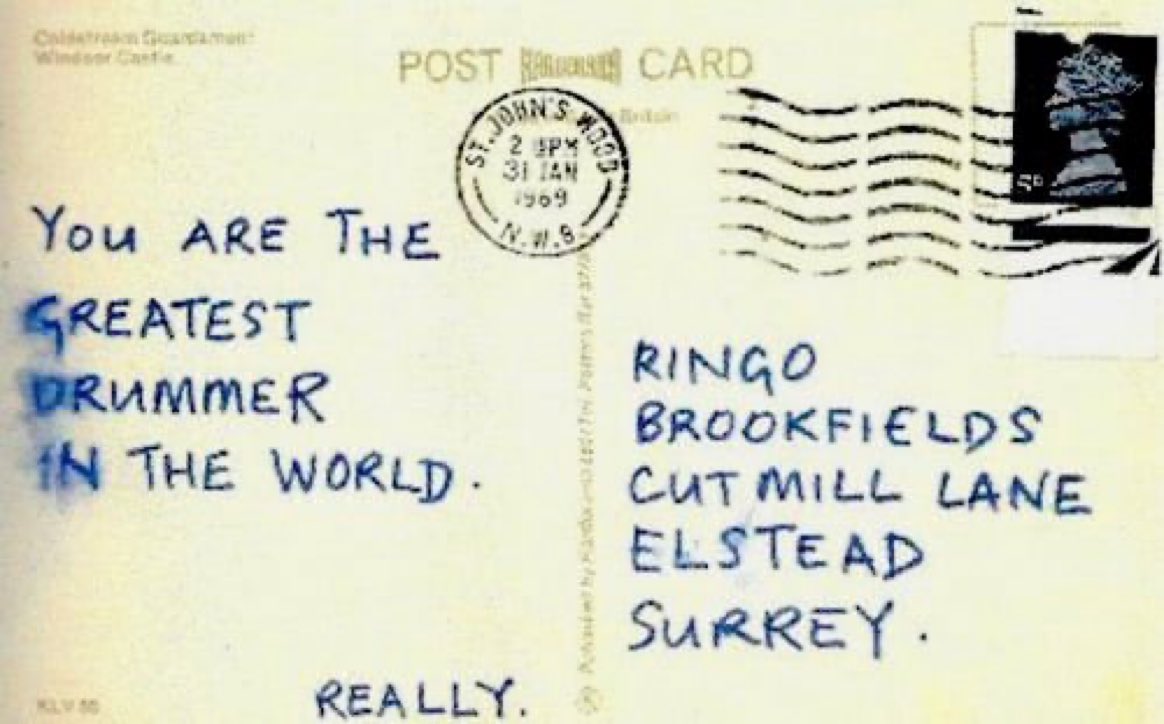 Coldstream Guardsmen
Windsor Castle.
POST CARD
Britain
ST. JOHN'S WOOD
31 JAN
1969
N.W.8.
5D
YOU ARE THE
GREATEST
DRUMMER
IN THE WORLD.
REALLY.
RINGO
BROOKFIELDS
CUT MILL LANE
ELSTEAD
SURREY.